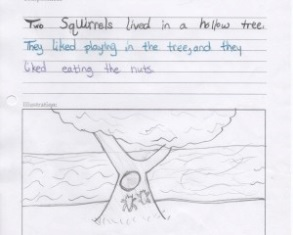 Two Squirrels lived in a hollow tree.
They liked playing in the trees, and they
liked eating the nuts.
Illustration: